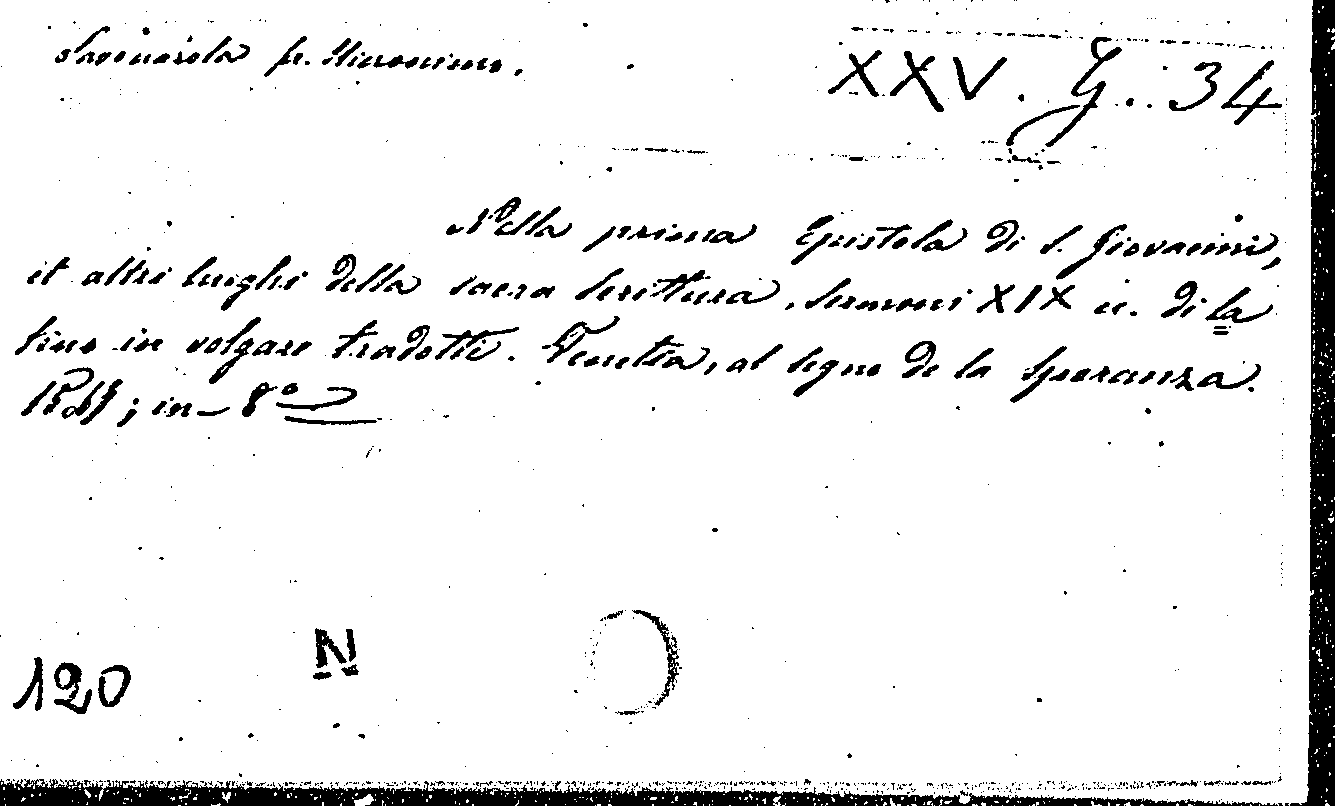 Savonarola fr. Hieronimo.
XXV. G. 34
Nella prima Epistola di S. Giovanni,
et altri luoghi della sacra Scrittura. Sermoni XIX ec. di la
tino in volgare tradotti. Venetia, al segno de la Speranza.
; in 8º
120
N